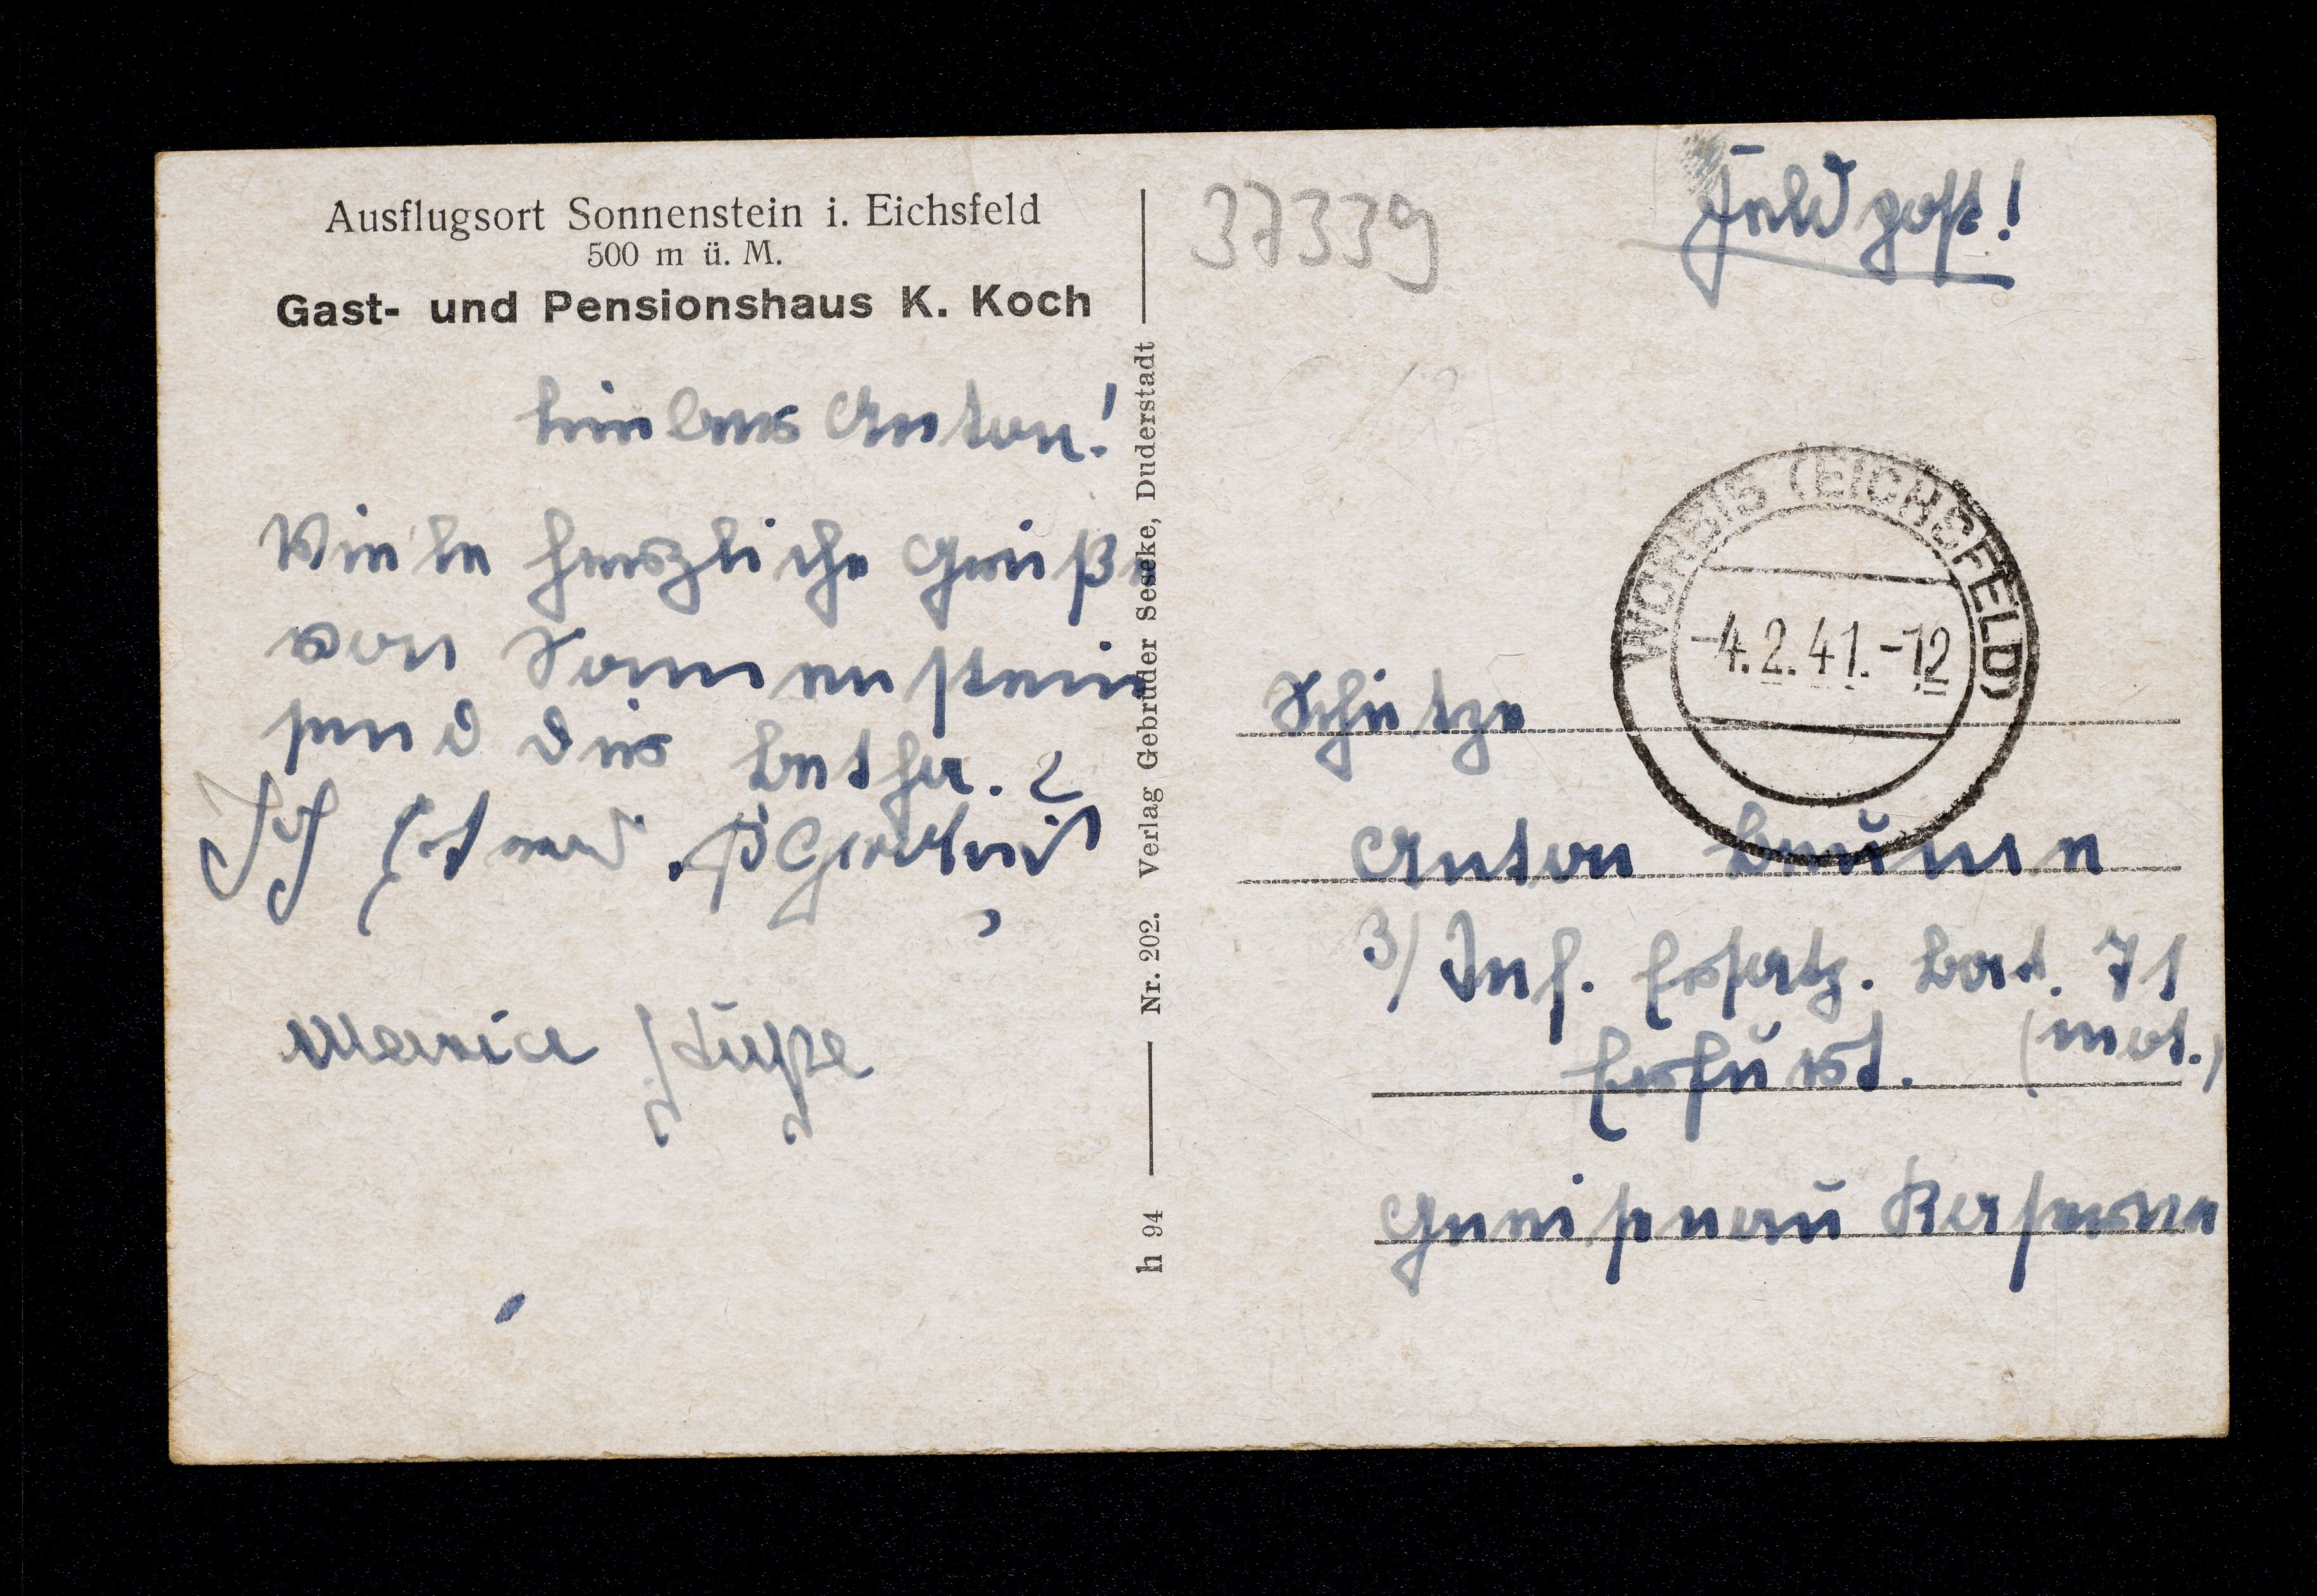 Ausflugsort Sonnenstein i. Eichsfeld
500 m ü. M.
Gast- und Pensionshaus K. Koch
Lieber Anton!
Viele herzliche Grüße
von Sonnenstein
send dir
Ich
Maria
h 94 Nr. 202. Verlag Gebrüder Seseke, Duderstadt
37339
Feldpost!
WORBIS (EICHSFELD)
-4.2.41.-12
Schütze
Anton
3/ Inf. Ersatz. Bat. 71
(mot.)
Erfurt.
Gneisenau Kaserne